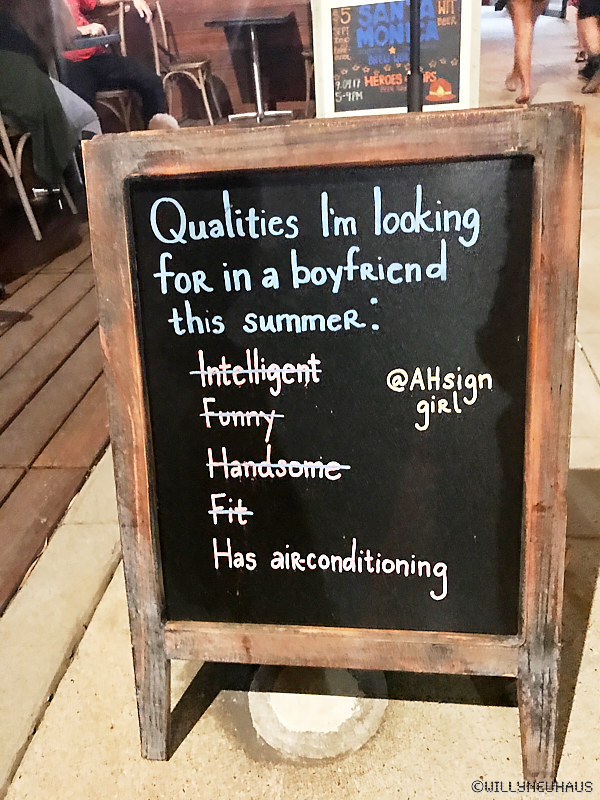 $5
SANTA
MONICA
WIT
BEER
BREW WORKS
HEROES
5-9PM
Qualities I'm looking
for in a boyfriend
this summer:
Intelligent
Funny
Handsome
Fit
Has air-conditioning
@AHsign
girl
©WILLYNEUHAUS